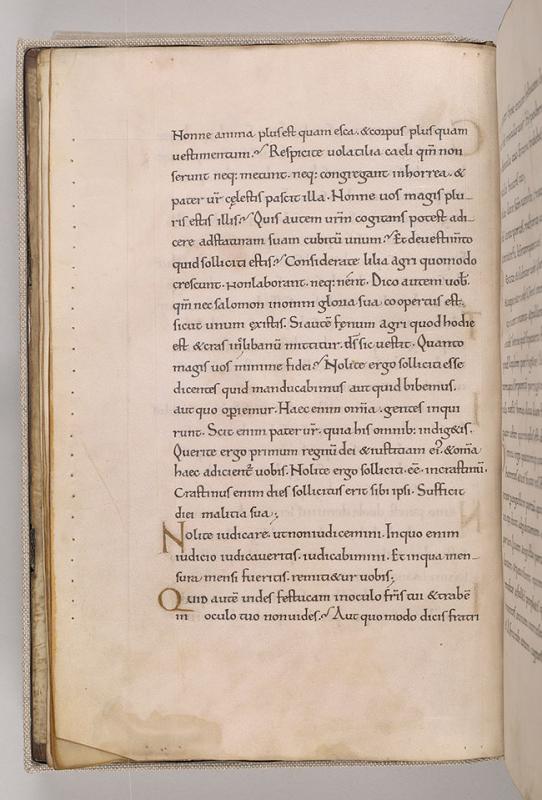 Nonne anima plus est quam esca. & corpus plus quam
vestimentum. Respicite volatilia caeli qm̄ non
serunt neq: metunt. neq: congregant inhorrea. &
pater vr̄ cęlestis pascit illa. Nonne vos magis plu-
ris estis illis. Quis autem vrm̄ cogitans potest adi-
cere adstaturam suam cubitū unum. Et devestim̄to
quid solliciti estis. Considerate lilia agri quomodo
crescunt. Nonlaborant. neq: nent. Dico autem vob̄.
qm̄ nec salomon inomni gloria sua coopertus est.
sicut unum existis. Si autē fęnum agri quod hodie
est. & cras inclibanū mittitur. d̄s sic vestit. Quanto
magis vos minime fidei. Nolite ergo solliciti esse
dicentes quid manducabimus aut quid bibemus.
aut quo operiemur. Haec enim omīa. gentes inqui
runt. Scit enim pater vr̄. quia his omnib: indig&is.
Querite ergo primum regnū dei & iustitiam ei'. & omīa
haec adicient̄ vobis. Nolite ergo solliciti. ēē. incrastinū.
Crastinus enim dies sollicitus erit sibi ipsi. Sufficit
diei malitia sua.
Nolite iudicare. ut non iudicemini. Inquo enim
iudicio iudicaveritis. iudicabimini. Et inqua men-
sura mensi fueritis. remeti&ur vobis.
Quid autē vides festucam inoculo fr̄is tui & trabē
in oculo tuo nonvides. Aut quomodo dicis fratri